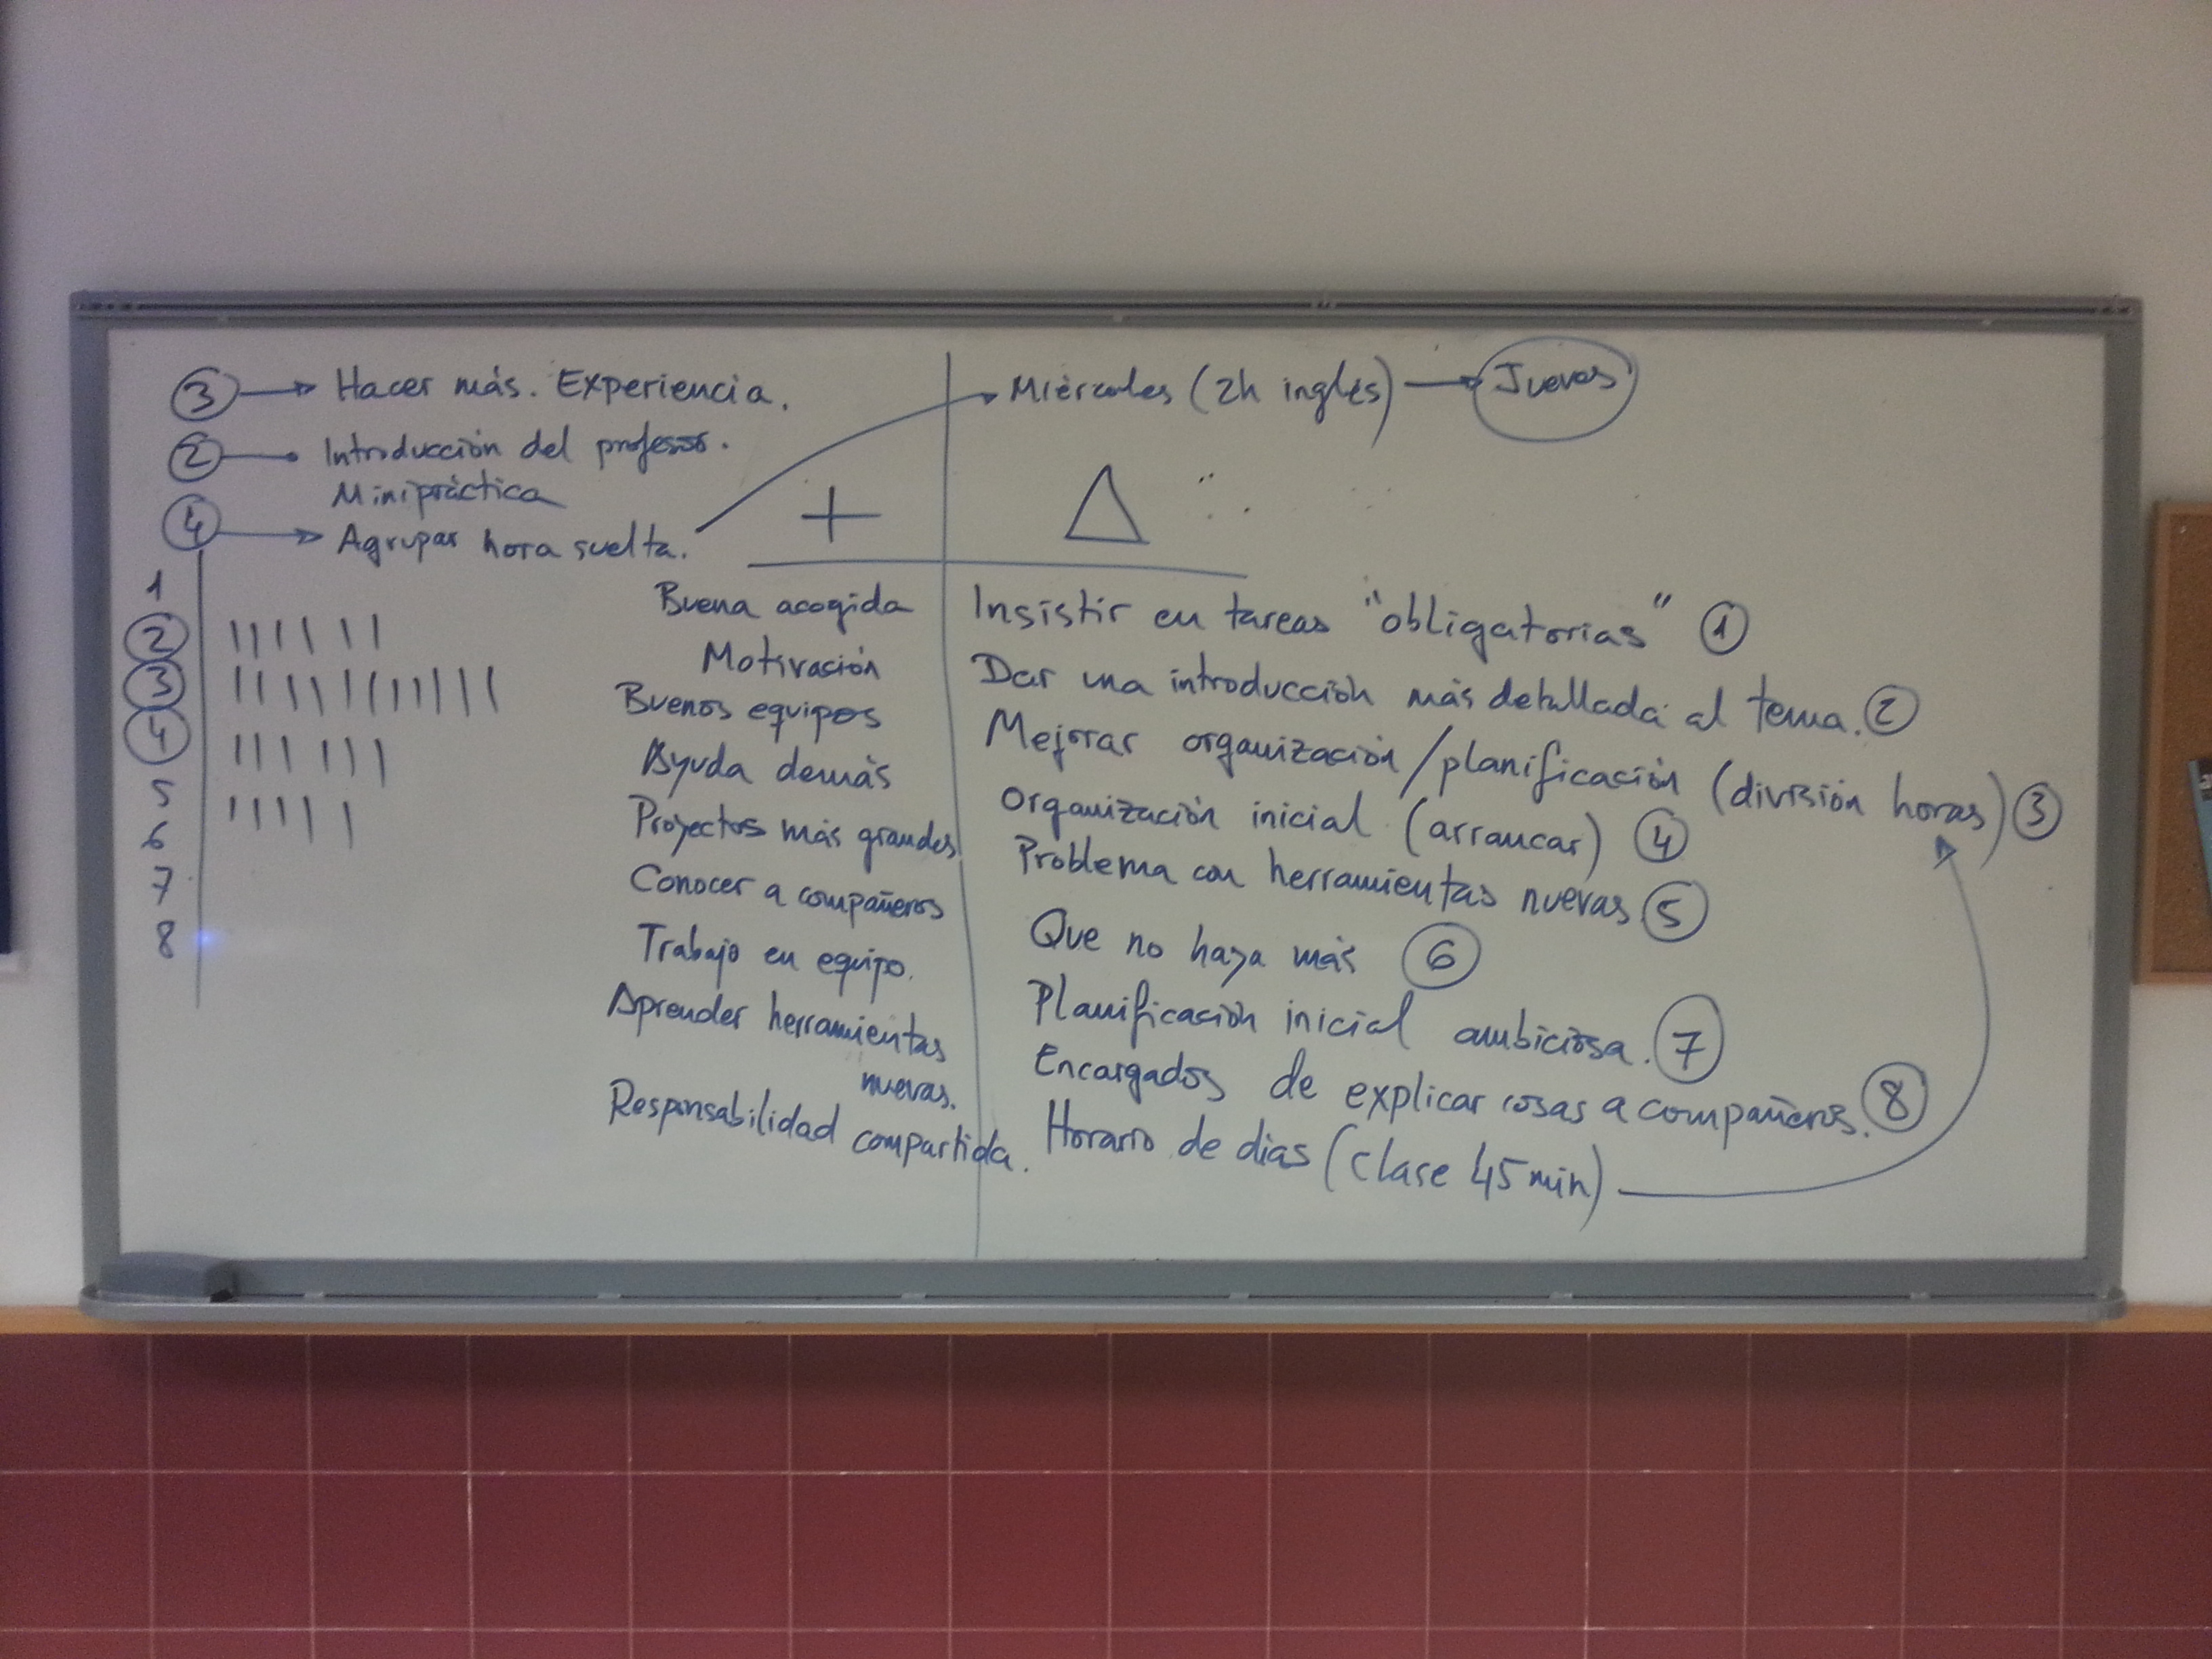 3 → Hacer más. Experiencia.
2 → Introducción del profesor.
Minipráctica
4 → Agrupar hora suelta.
Miércoles (2h inglés) → Jueves
+
△
1
2 |||||| 
3 ||||||||||||
4 ||||||
5 |||||
6
7
8
Buena acogida
Motivación
Buenos equipos
Ayuda demás
Proyectos más grandes
Conocer a compañeros
Trabajo en equipo.
Aprender herramientas
nuevas.
Responsabilidad compartida.
Insistir en tareas "obligatorias" 1
Dar una introducción más detallada al tema. 2
Mejorar organización/planificación (división horas) 3
Organización inicial (arrancar) 4
Problema con herramientas nuevas 5
Que no haya más 6
Planificación inicial ambiciosa. 7
Encargados de explicar cosas a compañeros. 8
Horario de dias (clase 45 min)